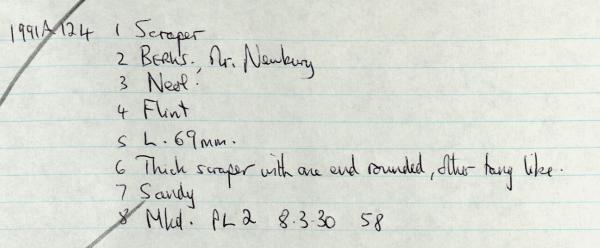 1991A124 1 Scraper
2 BERKS., Nr. Newbury
3 Neol.
4 Flint
5 L. 69mm.
6 Thick scraper with one end rounded, other tang like.
7 Sandy
8 Mkd. PL 2 8.3.30 58